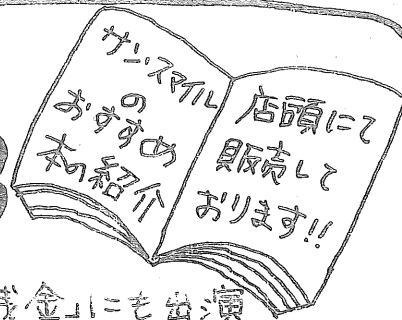 サン・スマイル
の
おすすめ
本の紹介
店頭にて
販売して
おります!!
金」にも出演